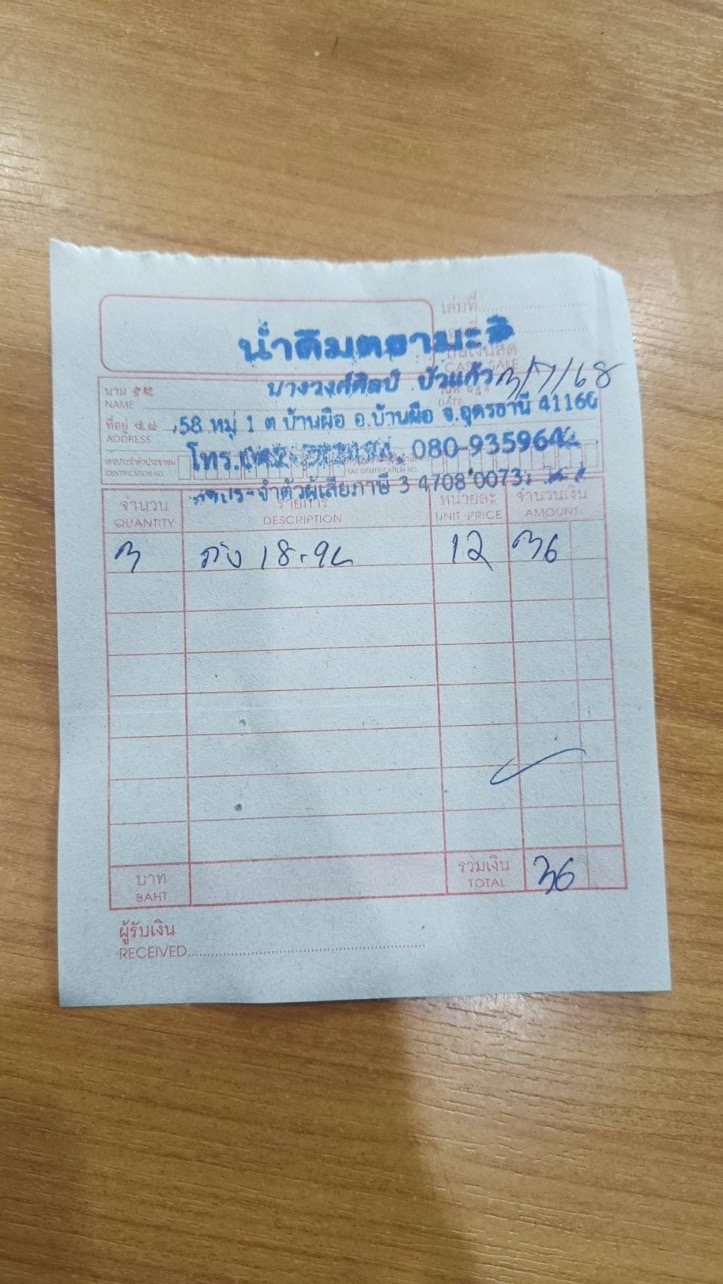 เล่มที่
น้ำดื่มตรามะลิ
บิลเงินสด
CASH SALE
นาม
NAME
นางวงศ์ศิลป์ บัวแก้ว
วันที่
DATE
3/7/68
ที่อยู่
ADDRESS
58 หมู่ 1 ต บ้านผือ อ.บ้านผือ จ.อุดรธานี 41160
โทร. 080-935964
เลขประจำตัวประชาชน
IDENTIFICATION NO.
TAX IDENTIFICATION NO.
จำตัวผู้เสียภาษี 3 4708 0073
จำนวน
QUANTITY
รายการ
DESCRIPTION
หน่วยละ
UNIT PRICE
จำนวนเงิน
AMOUNT
3 ถัง 18.9L 12 36
บาท
BAHT
รวมเงิน
TOTAL
36
ผู้รับเงิน
RECEIVED